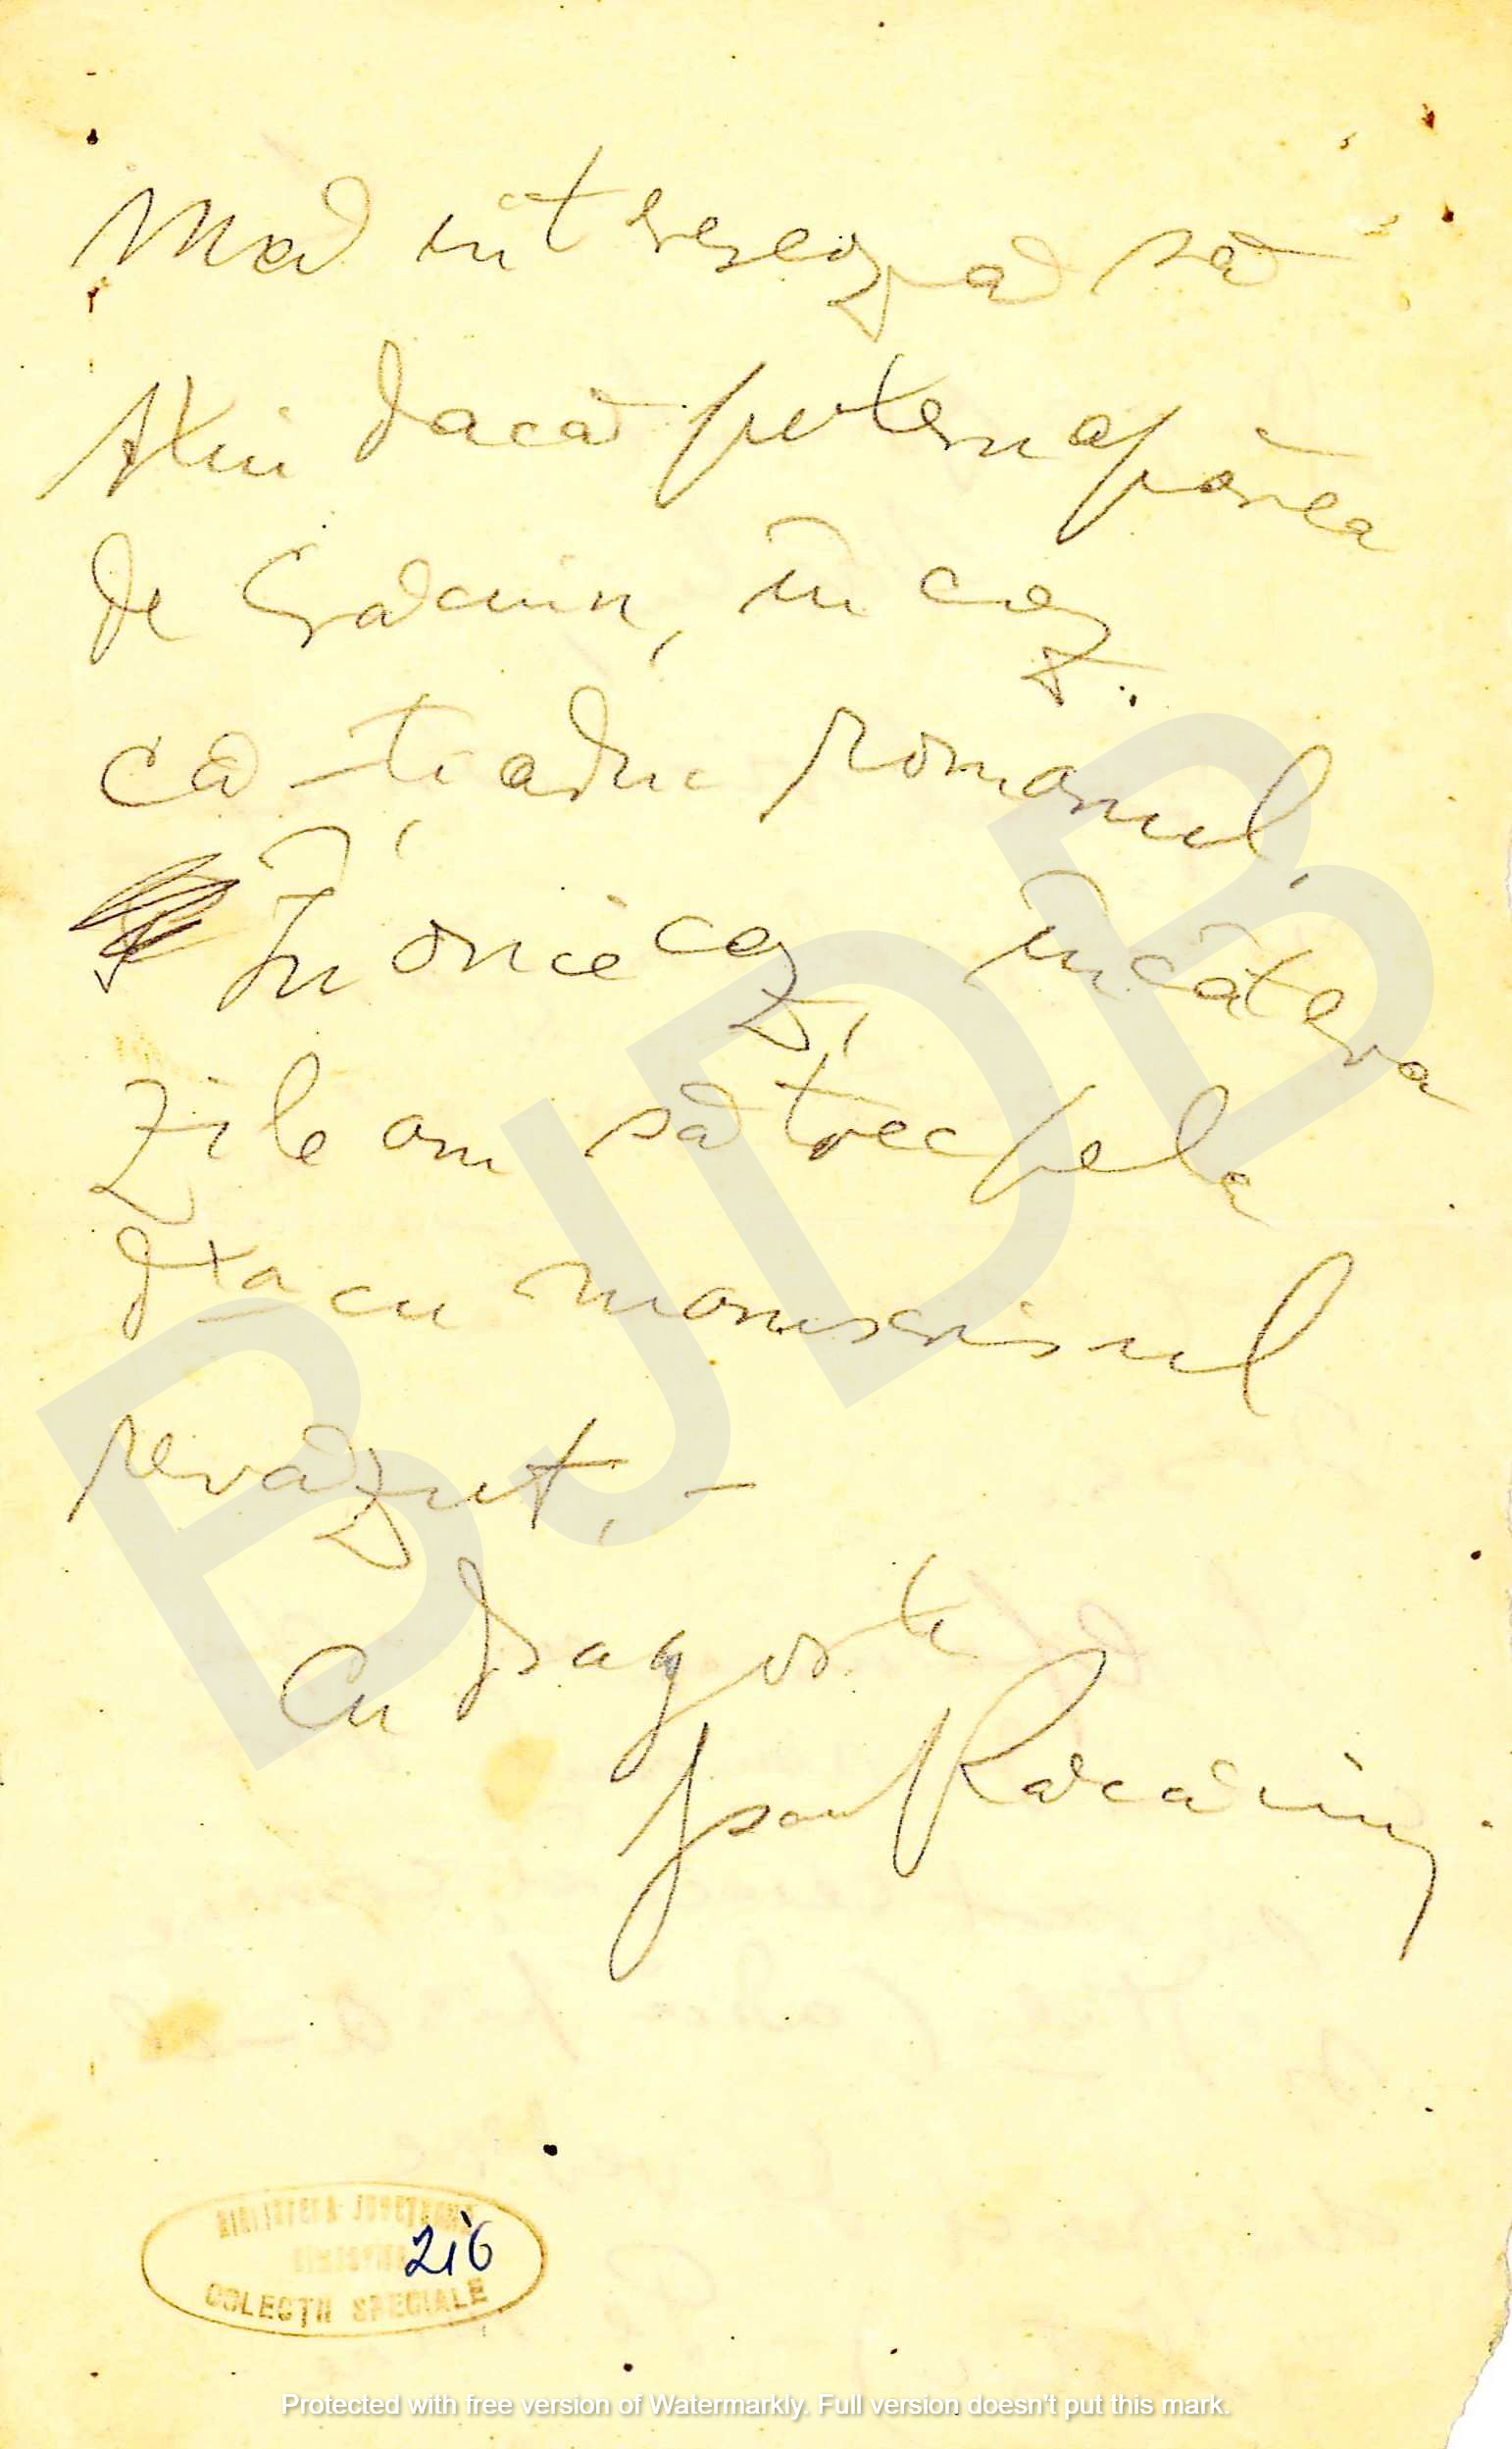 Mă interesează să
știu dacă putem apărea
de Crăciun, în caz
că -ți aduc romanul.
În orice caz, în câteva
zile am să trec pe la
d-ta cu manuscrisul
revăzut, -
Cu dragoste
Ion Răcăciuni
BJDB
BIBLIOTECA JUDEȚEANĂ
DÎMBOVIȚA
216
COLECȚII SPECIALE
Protected with free version of Watermarkly. Full version doesn't put this mark.